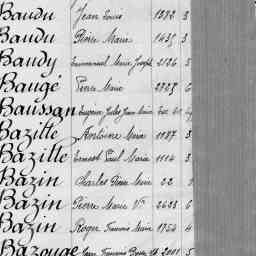 Baudu Jean Louis 1392 3
Baudu Pierre Marie 1435 3
Baudy Emmanuel Marie Joseph 2126 5
Baugé Pierre Marie 2725 6
Baussan Eugène Jules Jean Marie
Bazille Antoine Marie 1187 3
Bazille Ernest Paul Marie 1114 3
Bazin Charles Pierre Marie 22 1
Bazin Pierre Marie Vr 2623 6
Bazin Roger Francois Marie 1754 4
Bazouge Jean Francois 2001 5